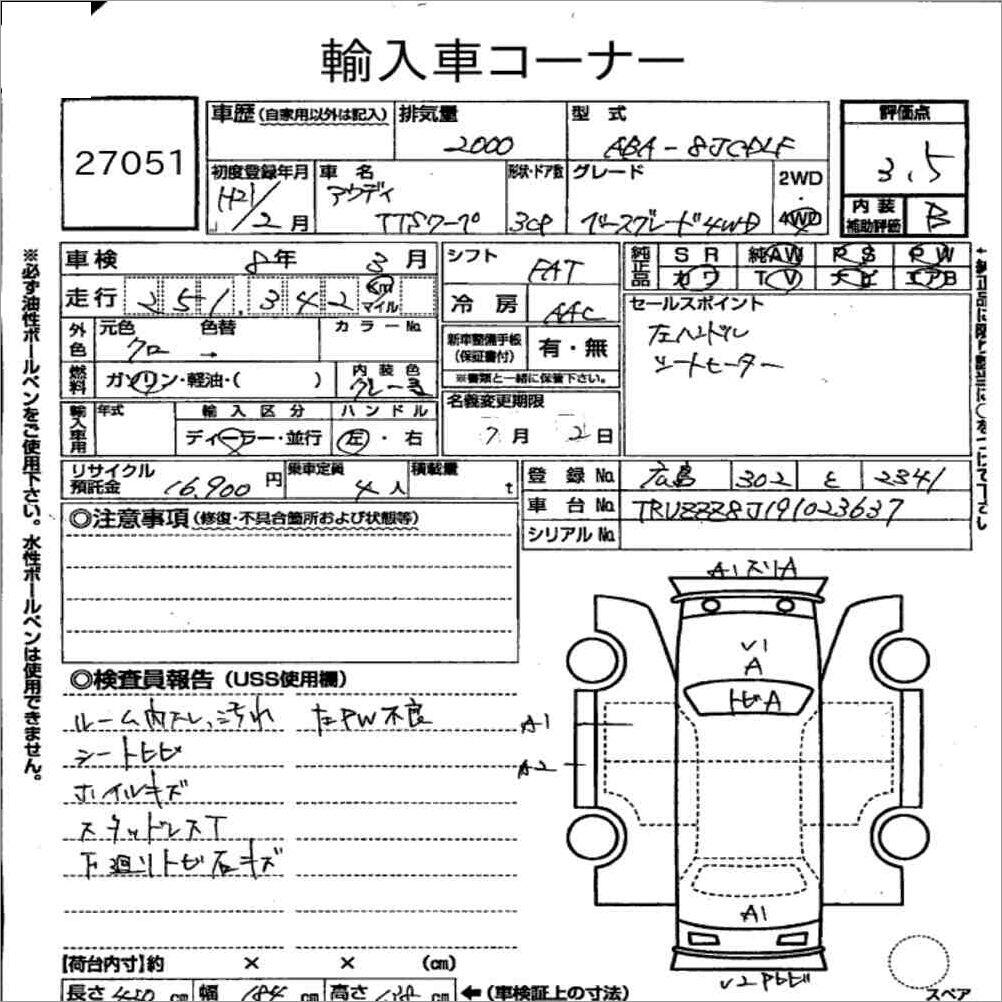 輸入車コーナー
27051
車歴 (自家用以外は記入)
排気量
2000
型式
ABA-8JCDLF
評価点
3.5
内装補助評価
B
初度登録年月
H21/2月
車名
アウディ
TTSクーペ
形状・ドア数
3CP
グレード
ベースグレード4WD
2WD
4WD
車検 8年 3月
走行 251,342 Km マイル
シフト
FAT
冷房
AAC
純正品 SR 純AW PS PW
カワ TV ナビ エアB
セールスポイント
左ハンドル
シートヒーター
外色 元色 色替 カラーNo.
クロ →
燃料 ガソリン・軽油・( )
内装色
グレー
新車整備手帳
(保証書付)
有・無
※書類と一緒に保管下さい。
輸入車用 年式 輸入区分 ハンドル
ディーラー・並行 左・右
名義変更期限
7月 2日
リサイクル預託金 16,900円
乗車定員 4人
積載量 t
登録No. 広島 302 2341
車台No. TRUZZZ8J191023637
シリアルNo.
◎注意事項 (修復・不具合箇所および状態等)
◎検査員報告 (USS使用欄)
ルーム内スレ、汚れ 左PW不良
シートヒビ
ホイルキズ
スタッドレスT
下廻りトビ石キズ
A1スリA
V1
A
トビA
A1
A2
A1
V2Pヒビ
スペア
【荷台内寸】約 × × (cm)
長さ 420 cm 幅 184 cm 高さ 138 cm ←(車検証上の寸法)
※必ず油性ボールペンをご使用下さい。水性ボールペンは使用できません。